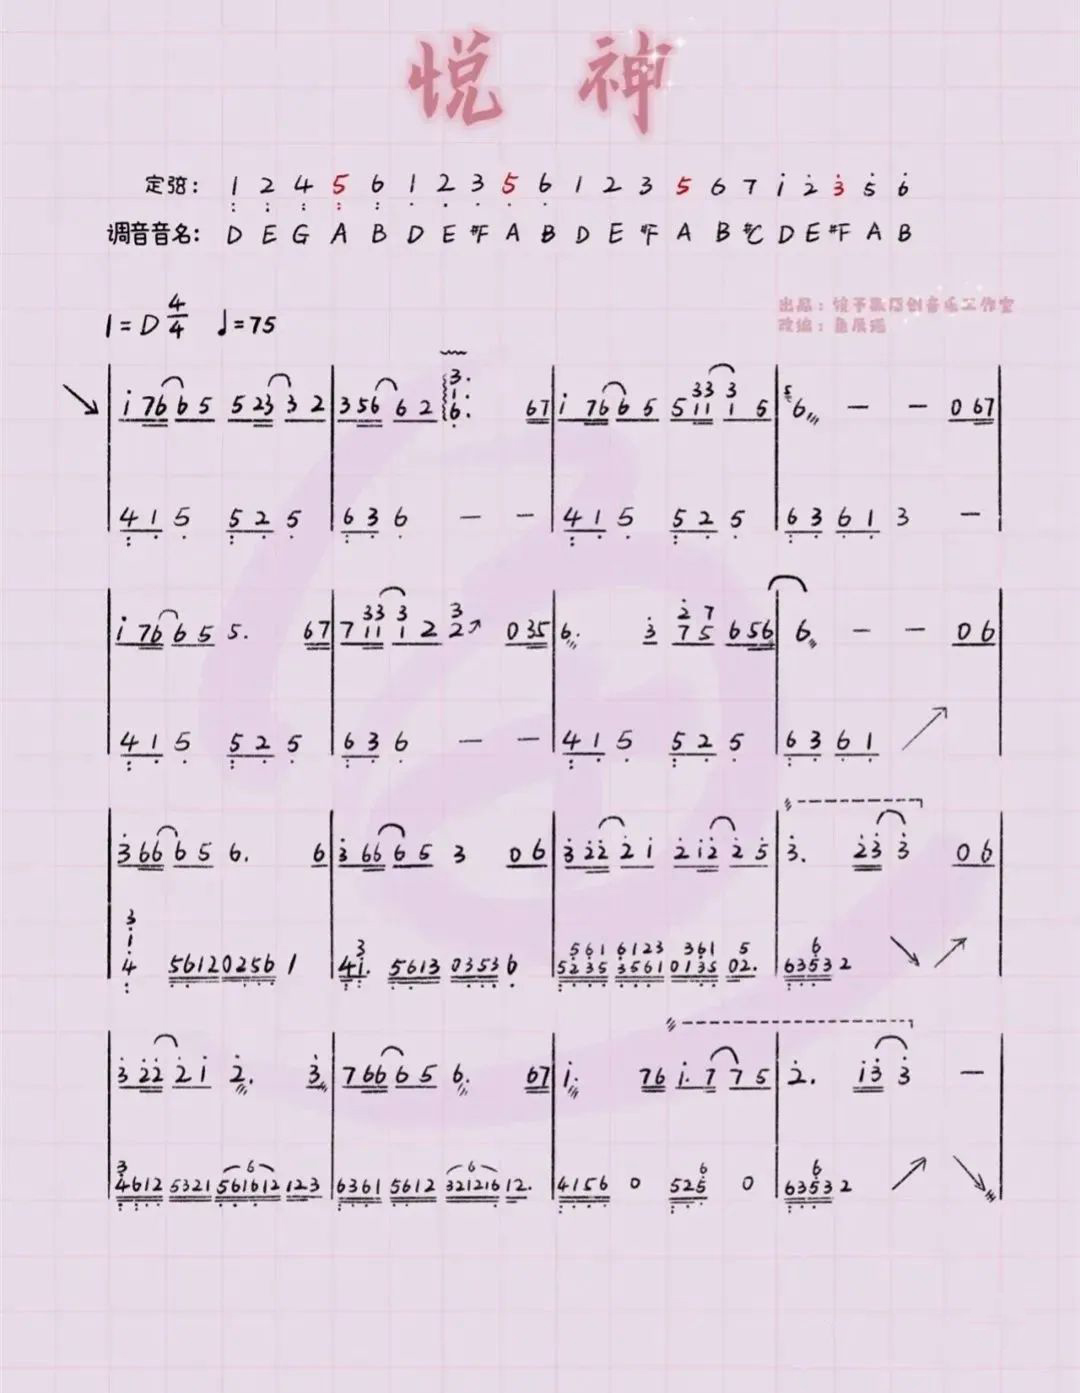 悦 神
定弦： 1 2 4 5 6 1 2 3 5 6 1 2 3 5 6 7 i 2 3 5 6
调音音名： D E G A B D E #F A B D E #F A B #C D E #F A B
1=D 4/4 ♩=75
出品：
改编：
i 76 6 5 5 23 3 2 | 3 56 6 2 3 1 6. 67 | i 76 6 5 5 33 11 3 1 5 | 5 6 — — 0 67
4 1 5 5 2 5 | 6 3 6 — — | 4 1 5 5 2 5 | 6 3 6 1 3 —
i 76 6 5 5. 67 | 7 33 11 3 1 2 3 2 0 35 | 6. 3 2 7 7 5 6 56 | 6 — — 0 6
4 1 5 5 2 5 | 6 3 6 — — | 4 1 5 5 2 5 | 6 3 6 1
3 66 6 5 6. 6 | 3 66 6 5 3 0 6 | 3 22 2 i 2 i2 2 5 | 3. 23 3 0 6
3 i 4 5612 0256 1 | 3 4 i. 5613 0353 6 | 561 6123 361 5 5235 3561 0135 02. | 6 63532
3 22 2 i 2. 3 | 7 66 6 5 6. 67 | i. 76 i. 7 7 5 | 2. i3 3 —
3 4612 5321 6 561612 123 | 6361 5612 6 321216 12. | 4156 0 6 525 0 | 6 63532